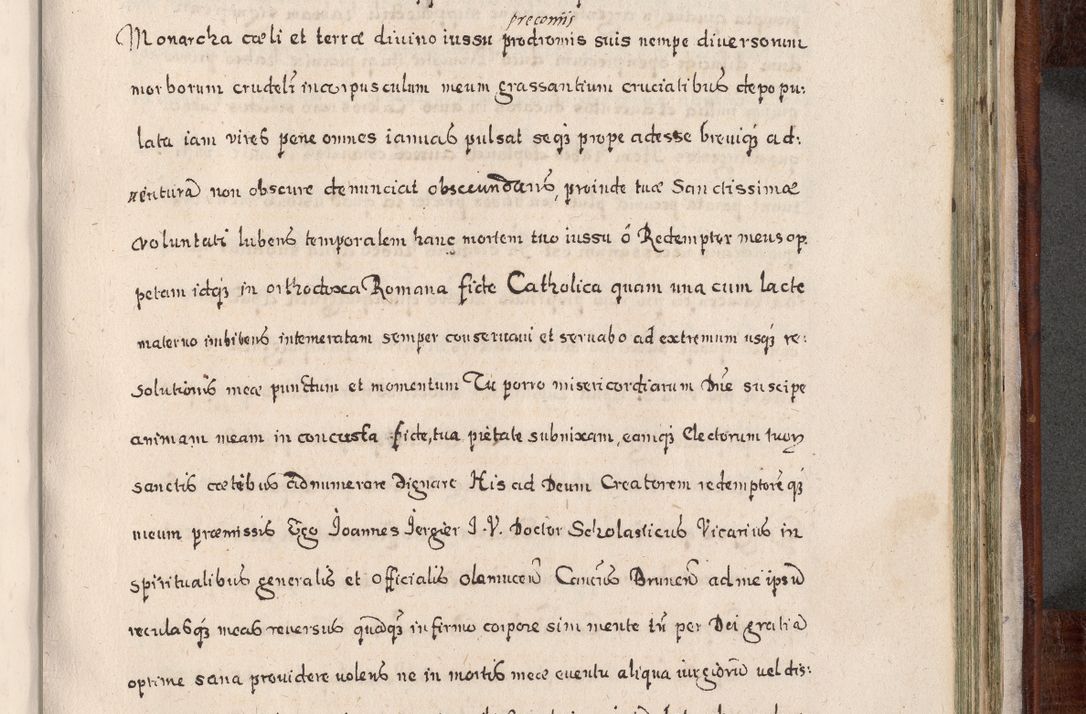 preconijs
Monarcha cæli et terræ divino iussu prodromis suis nempe diversorum
morborum crudelr̃ in corpusculum meum grassantium cruciatibus depopu:
lata iam vires pene omnes ianuas pulsat seqꝫ prope adesse breviqꝫ ad:
venturã non obscure denunciat obsecundans, proinde tuæ Sanctissimæ
voluntati lubens temporalem hanc mortem tuo iussu ô Redemptor meus op:
petam idqꝫ in orthodoxa Romana fide Catholica quam una cum lacte
materno imbibens intemeratam semper conservavi et servabo ad extremum usqꝫ re:
solutionis meæ punctum et momentum Tu porro misericordiarum Dñe suscipe
animam meam in concussa fide, tua pietate subnixam, eamqꝫ Electorum tuoꝝ
sanctis cætibus adnumerare dignare His ad Deum Creatorem redemptorẽ qꝫ
meum præmissis Ego Joannes Jergier I. V. Doctor Scholasticus Vicarius in
spiritualibus generalis et Officialis Olomucen̄ Canc̃us Brunen̄ ad me ipsũ
reculasqꝫ meas reversus quãqꝫ infirmo corpore sim mente tñ per Dei gratiã
optime sana providere volens ne in mortis meæ eventu aliqua iurgiorũ vel dis: